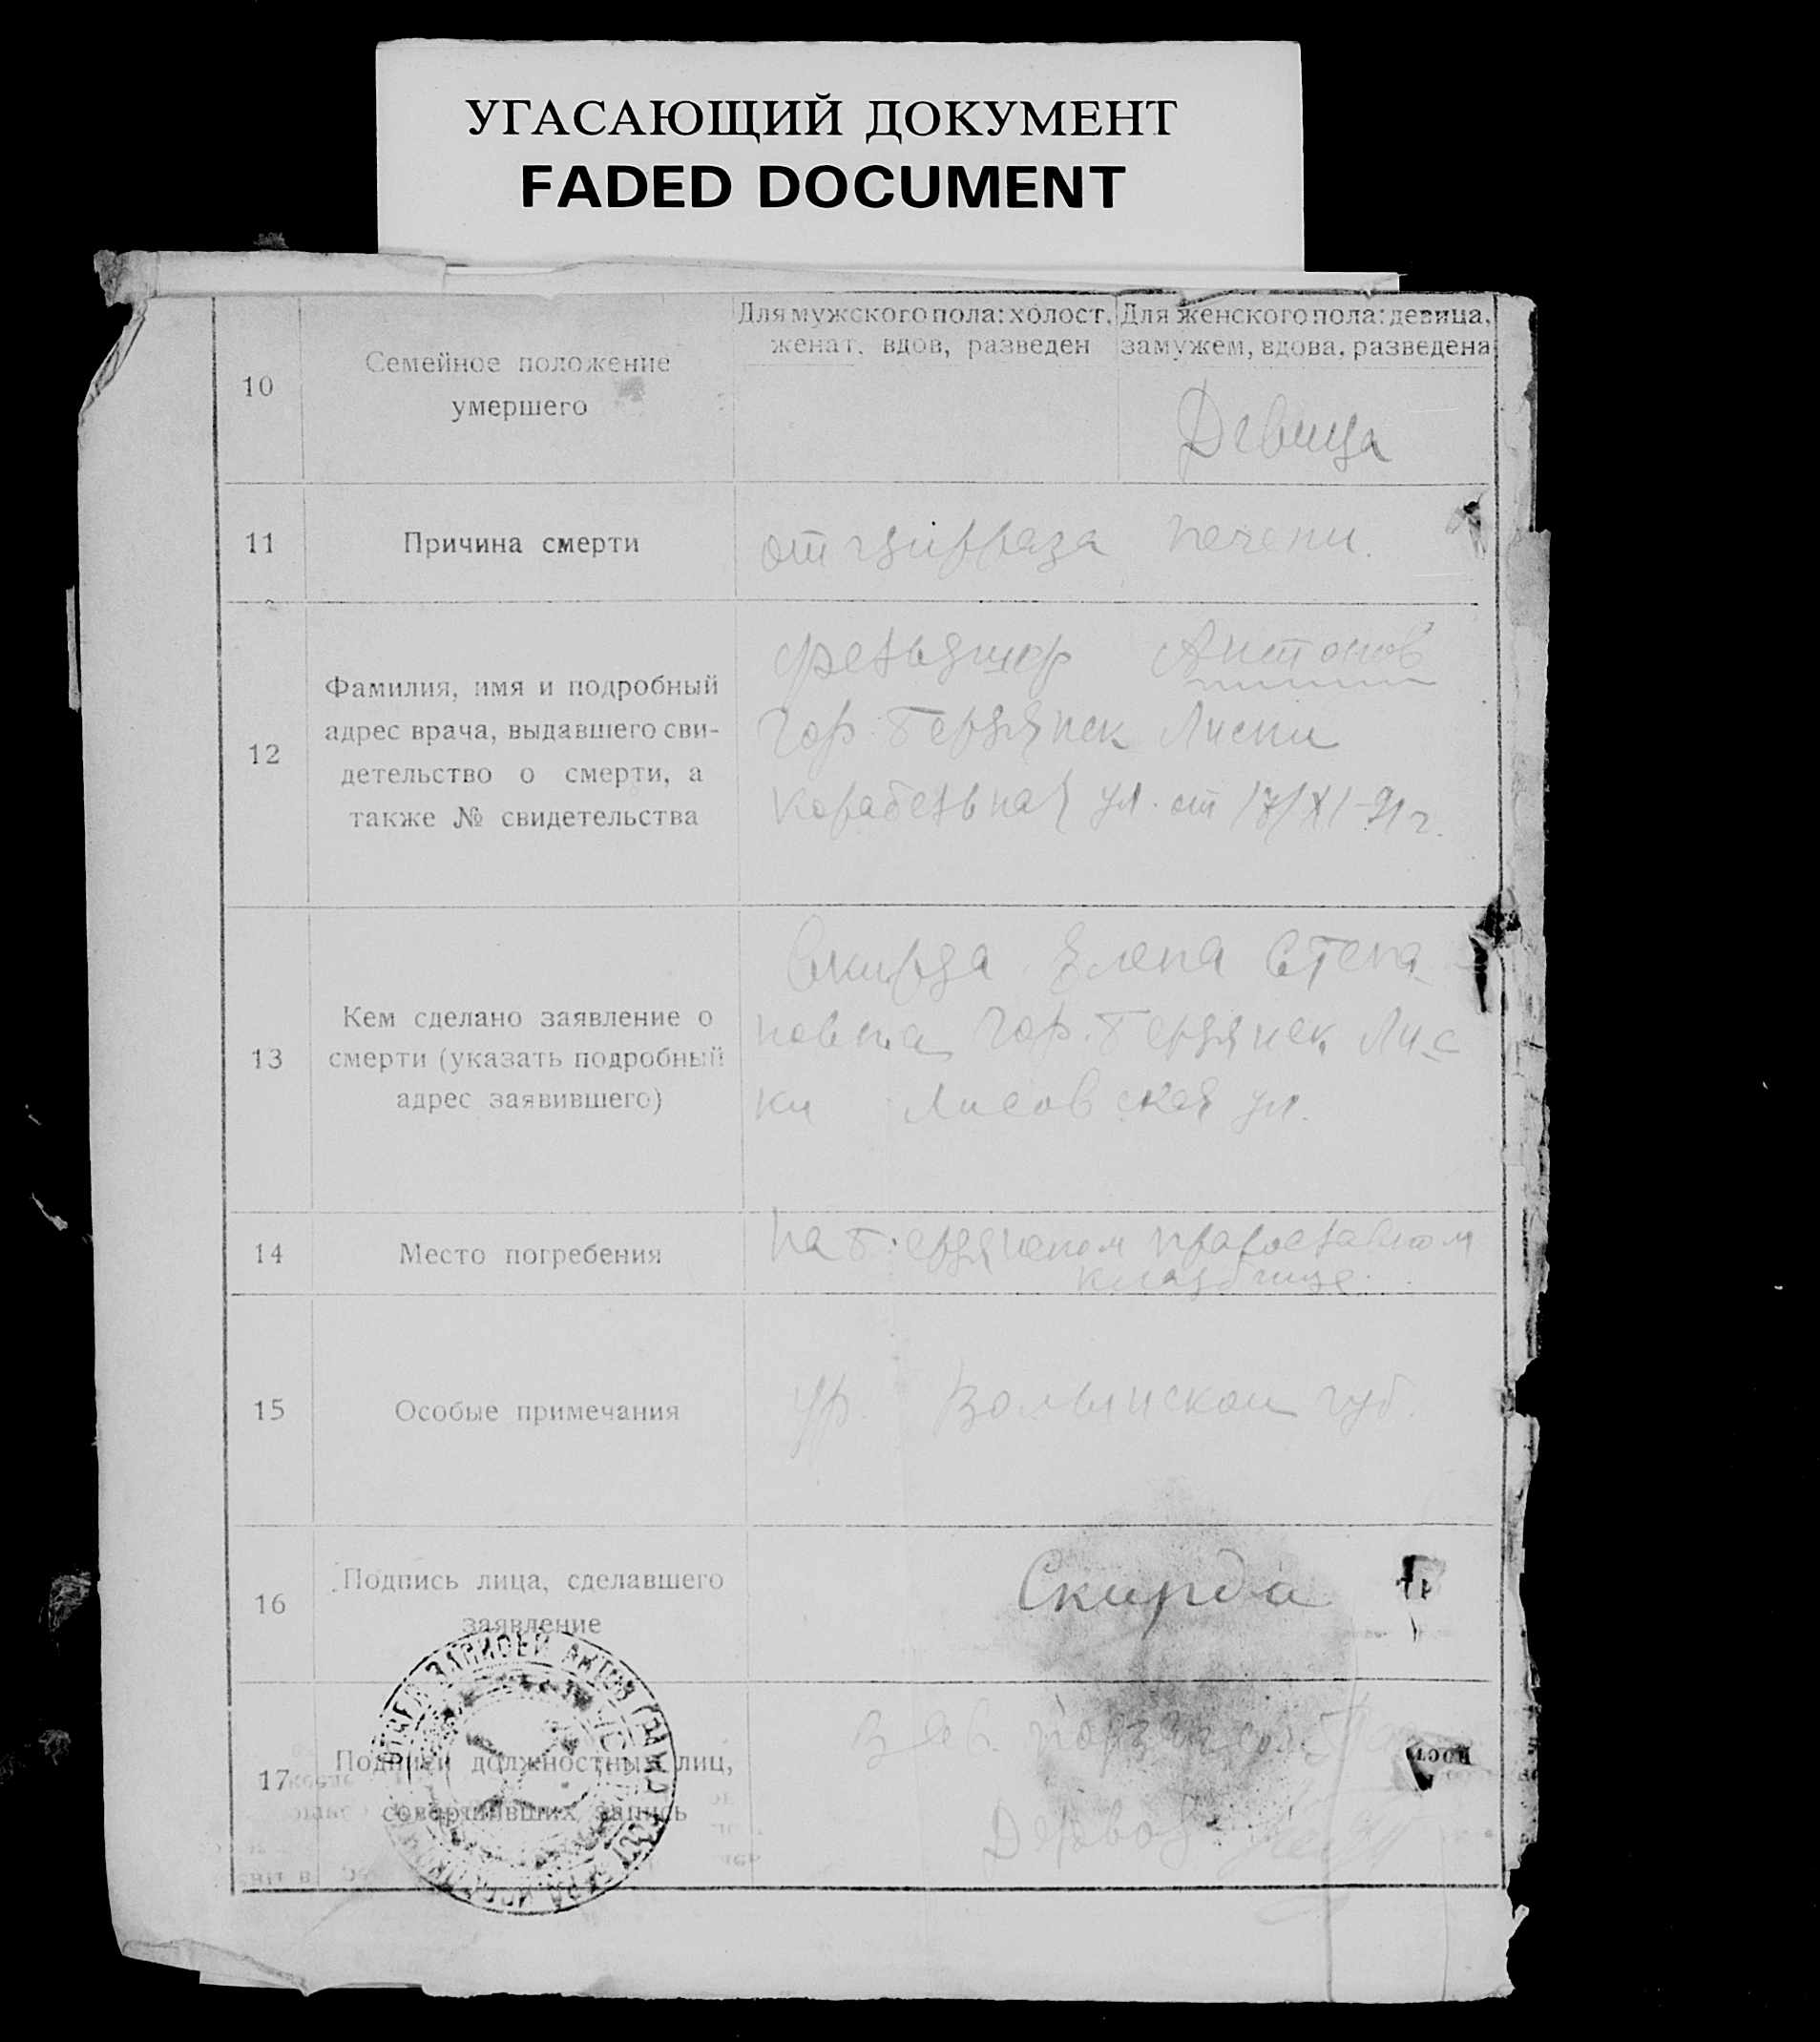 УГАСАЮЩИЙ ДОКУМЕНТ
FADED DOCUMENT
10
Семейное положение
умершего
Для мужского пола: холост,
женат, вдов, разведен
Для женского пола: девица,
замужем, вдова, разведена
Девица
11
Причина смерти
от цирраза печени.
12
Фамилия, имя и подробный
адрес врача, выдавшего сви-
детельство о смерти, а
также № свидетельства
фельдшер Антонов
гор. Бердянск Лиски
Корабельная ул. от 17/XI-21 г.
13
Кем сделано заявление о
смерти (указать подробный
адрес заявившего)
Скирда Елена Степа
новна гор. Бердянск Лис
ки Лисовская ул.
14
Место погребения
на Бердянском православном
кладбище.
15
Особые примечания
ур. Волынской губ.
16
Подпись лица, сделавшего
заявление
Скирда
17
Подписи должностных лиц,
совершивших запись
Зав.